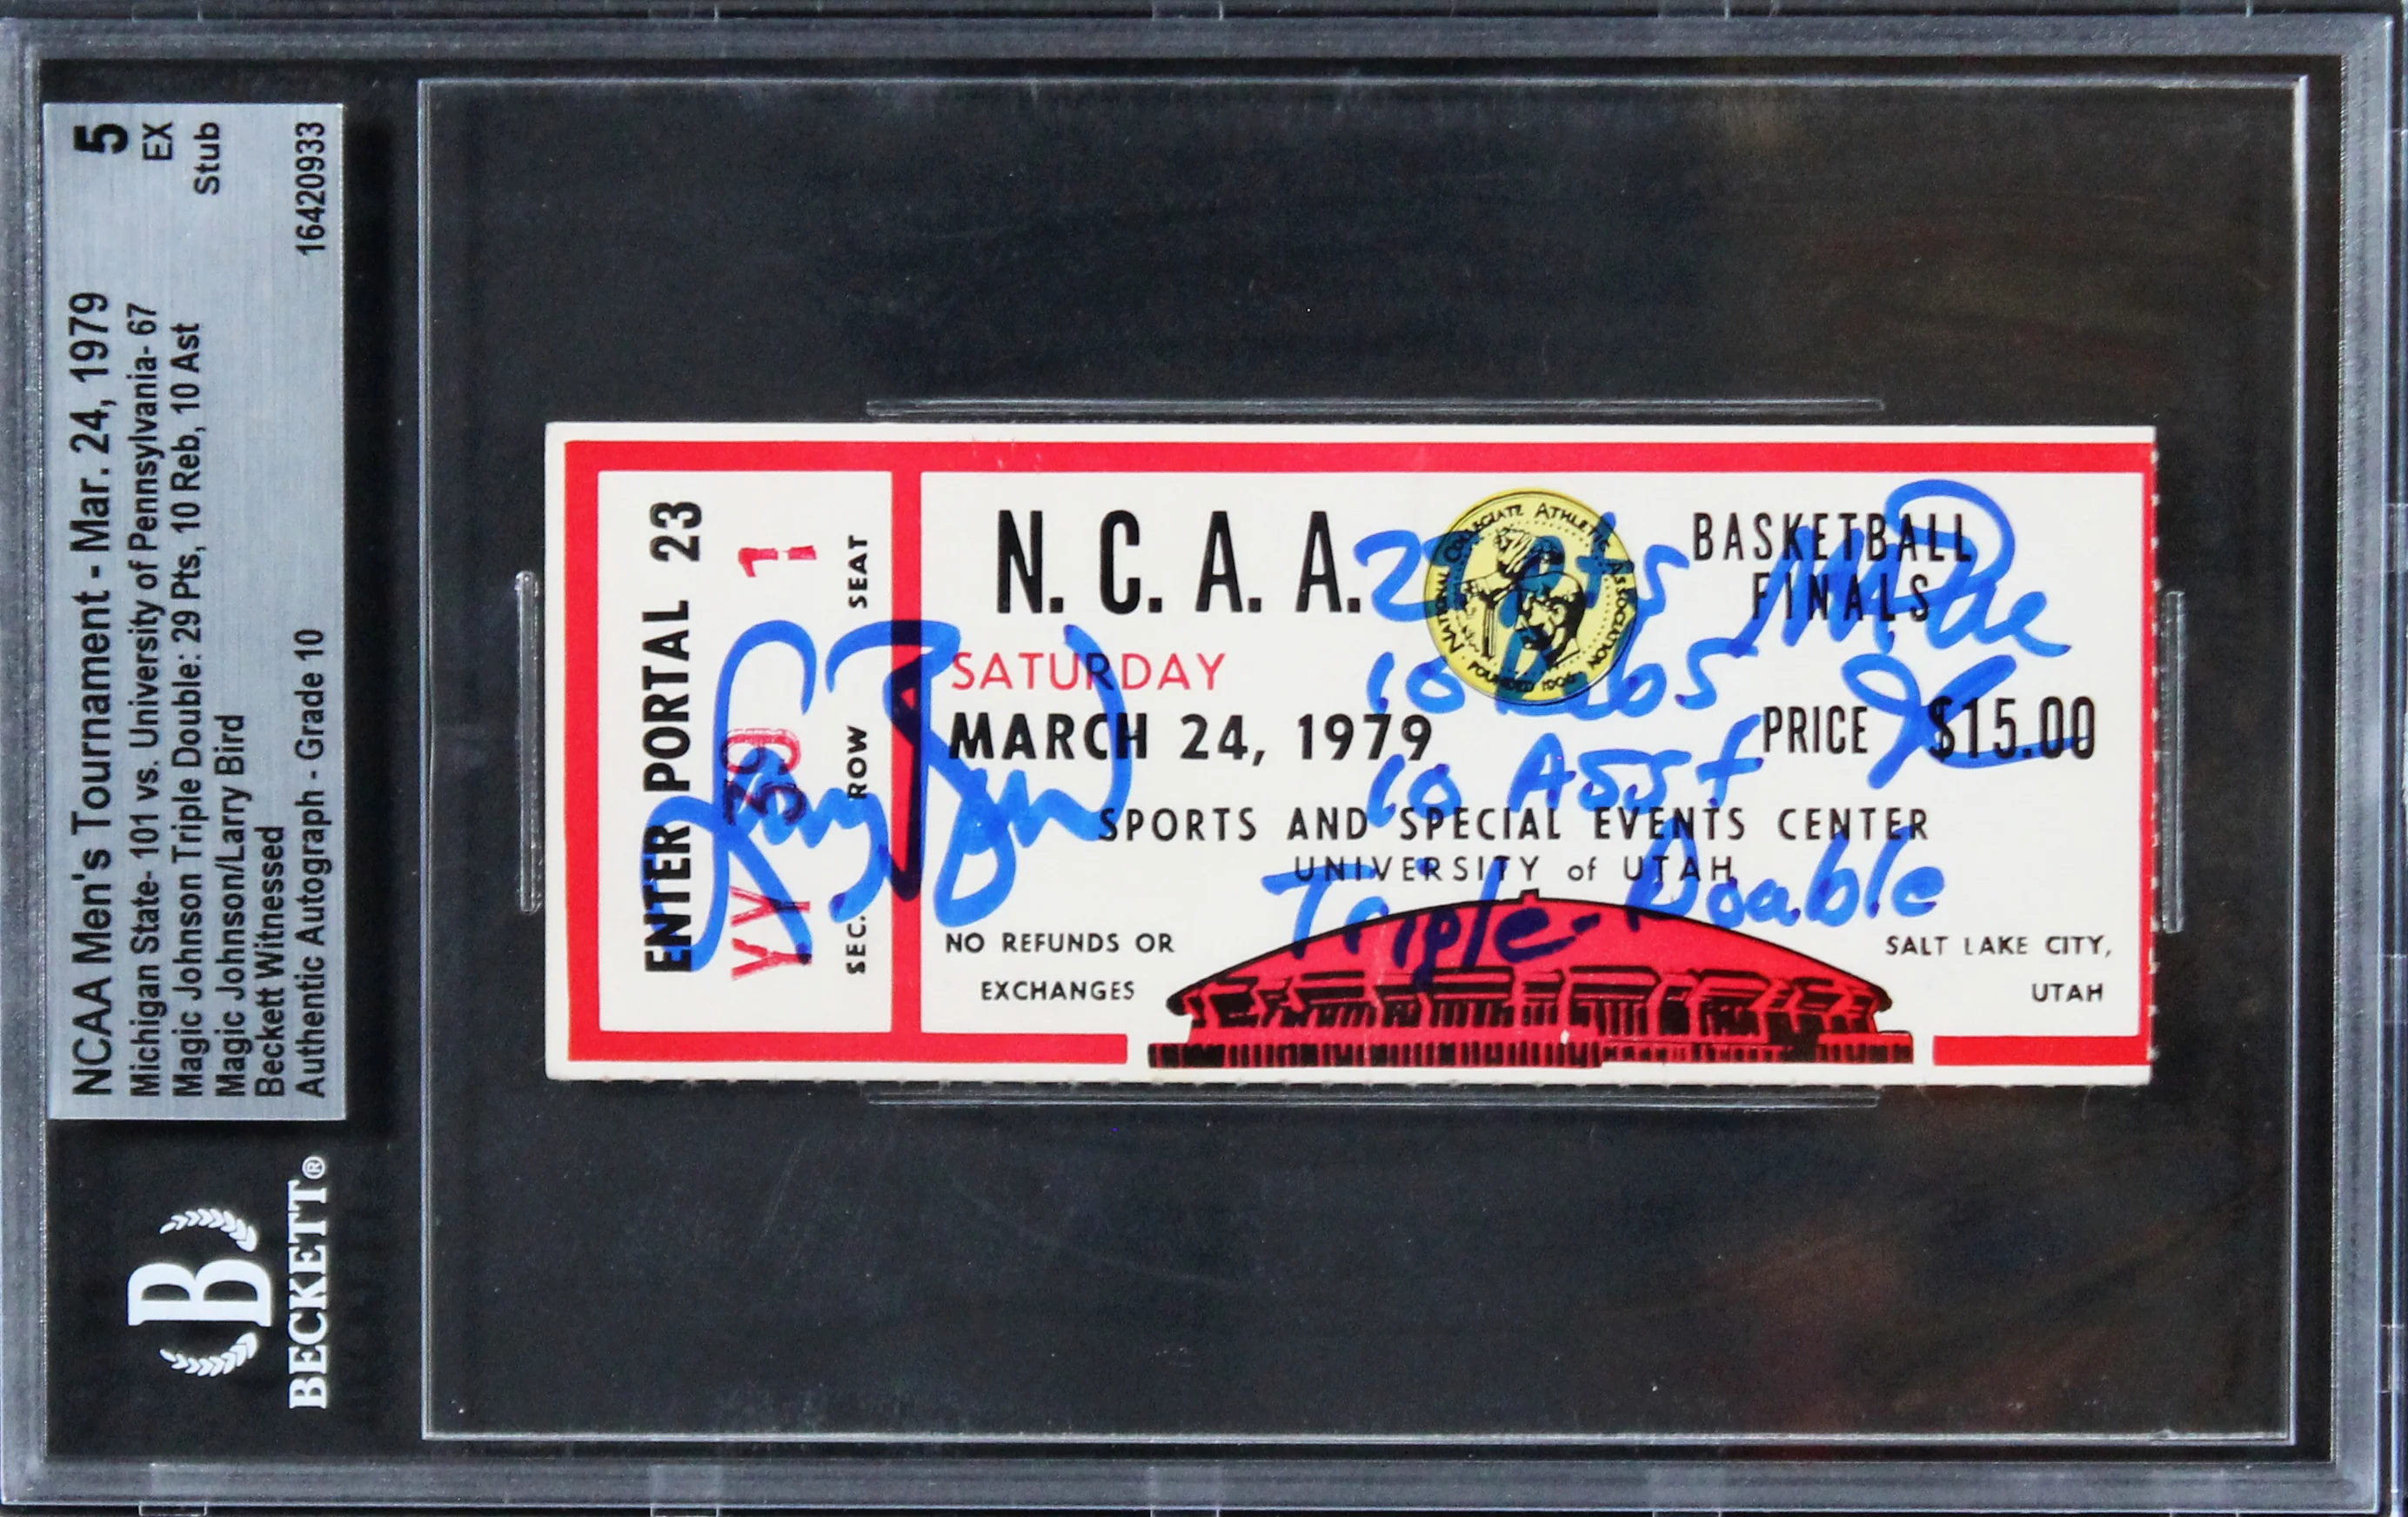 NCAA Men's Tournament - Mar. 24, 1979 5
Michigan State- 101 vs. University of Pennsylvania- 67 EX
Magic Johnson Triple Double: 29 Pts, 10 Reb, 10 Ast Stub
Magic Johnson/Larry Bird
Beckett Witnessed
Authentic Autograph - Grade 10 16420933
B
BECKETT®
ENTER PORTAL 23
YY 39 1
SEC. ROW SEAT
N. C. A. A.
NATIONAL COLLEGIATE ATHLETIC ASSOCIATION
FOUNDED 1906
BASKETBALL
FINALS
SATURDAY
MARCH 24, 1979
PRICE $15.00
SPORTS AND SPECIAL EVENTS CENTER
UNIVERSITY of UTAH
NO REFUNDS OR
EXCHANGES
SALT LAKE CITY,
UTAH
Larry Bird
10
10 Asst
Triple-Double